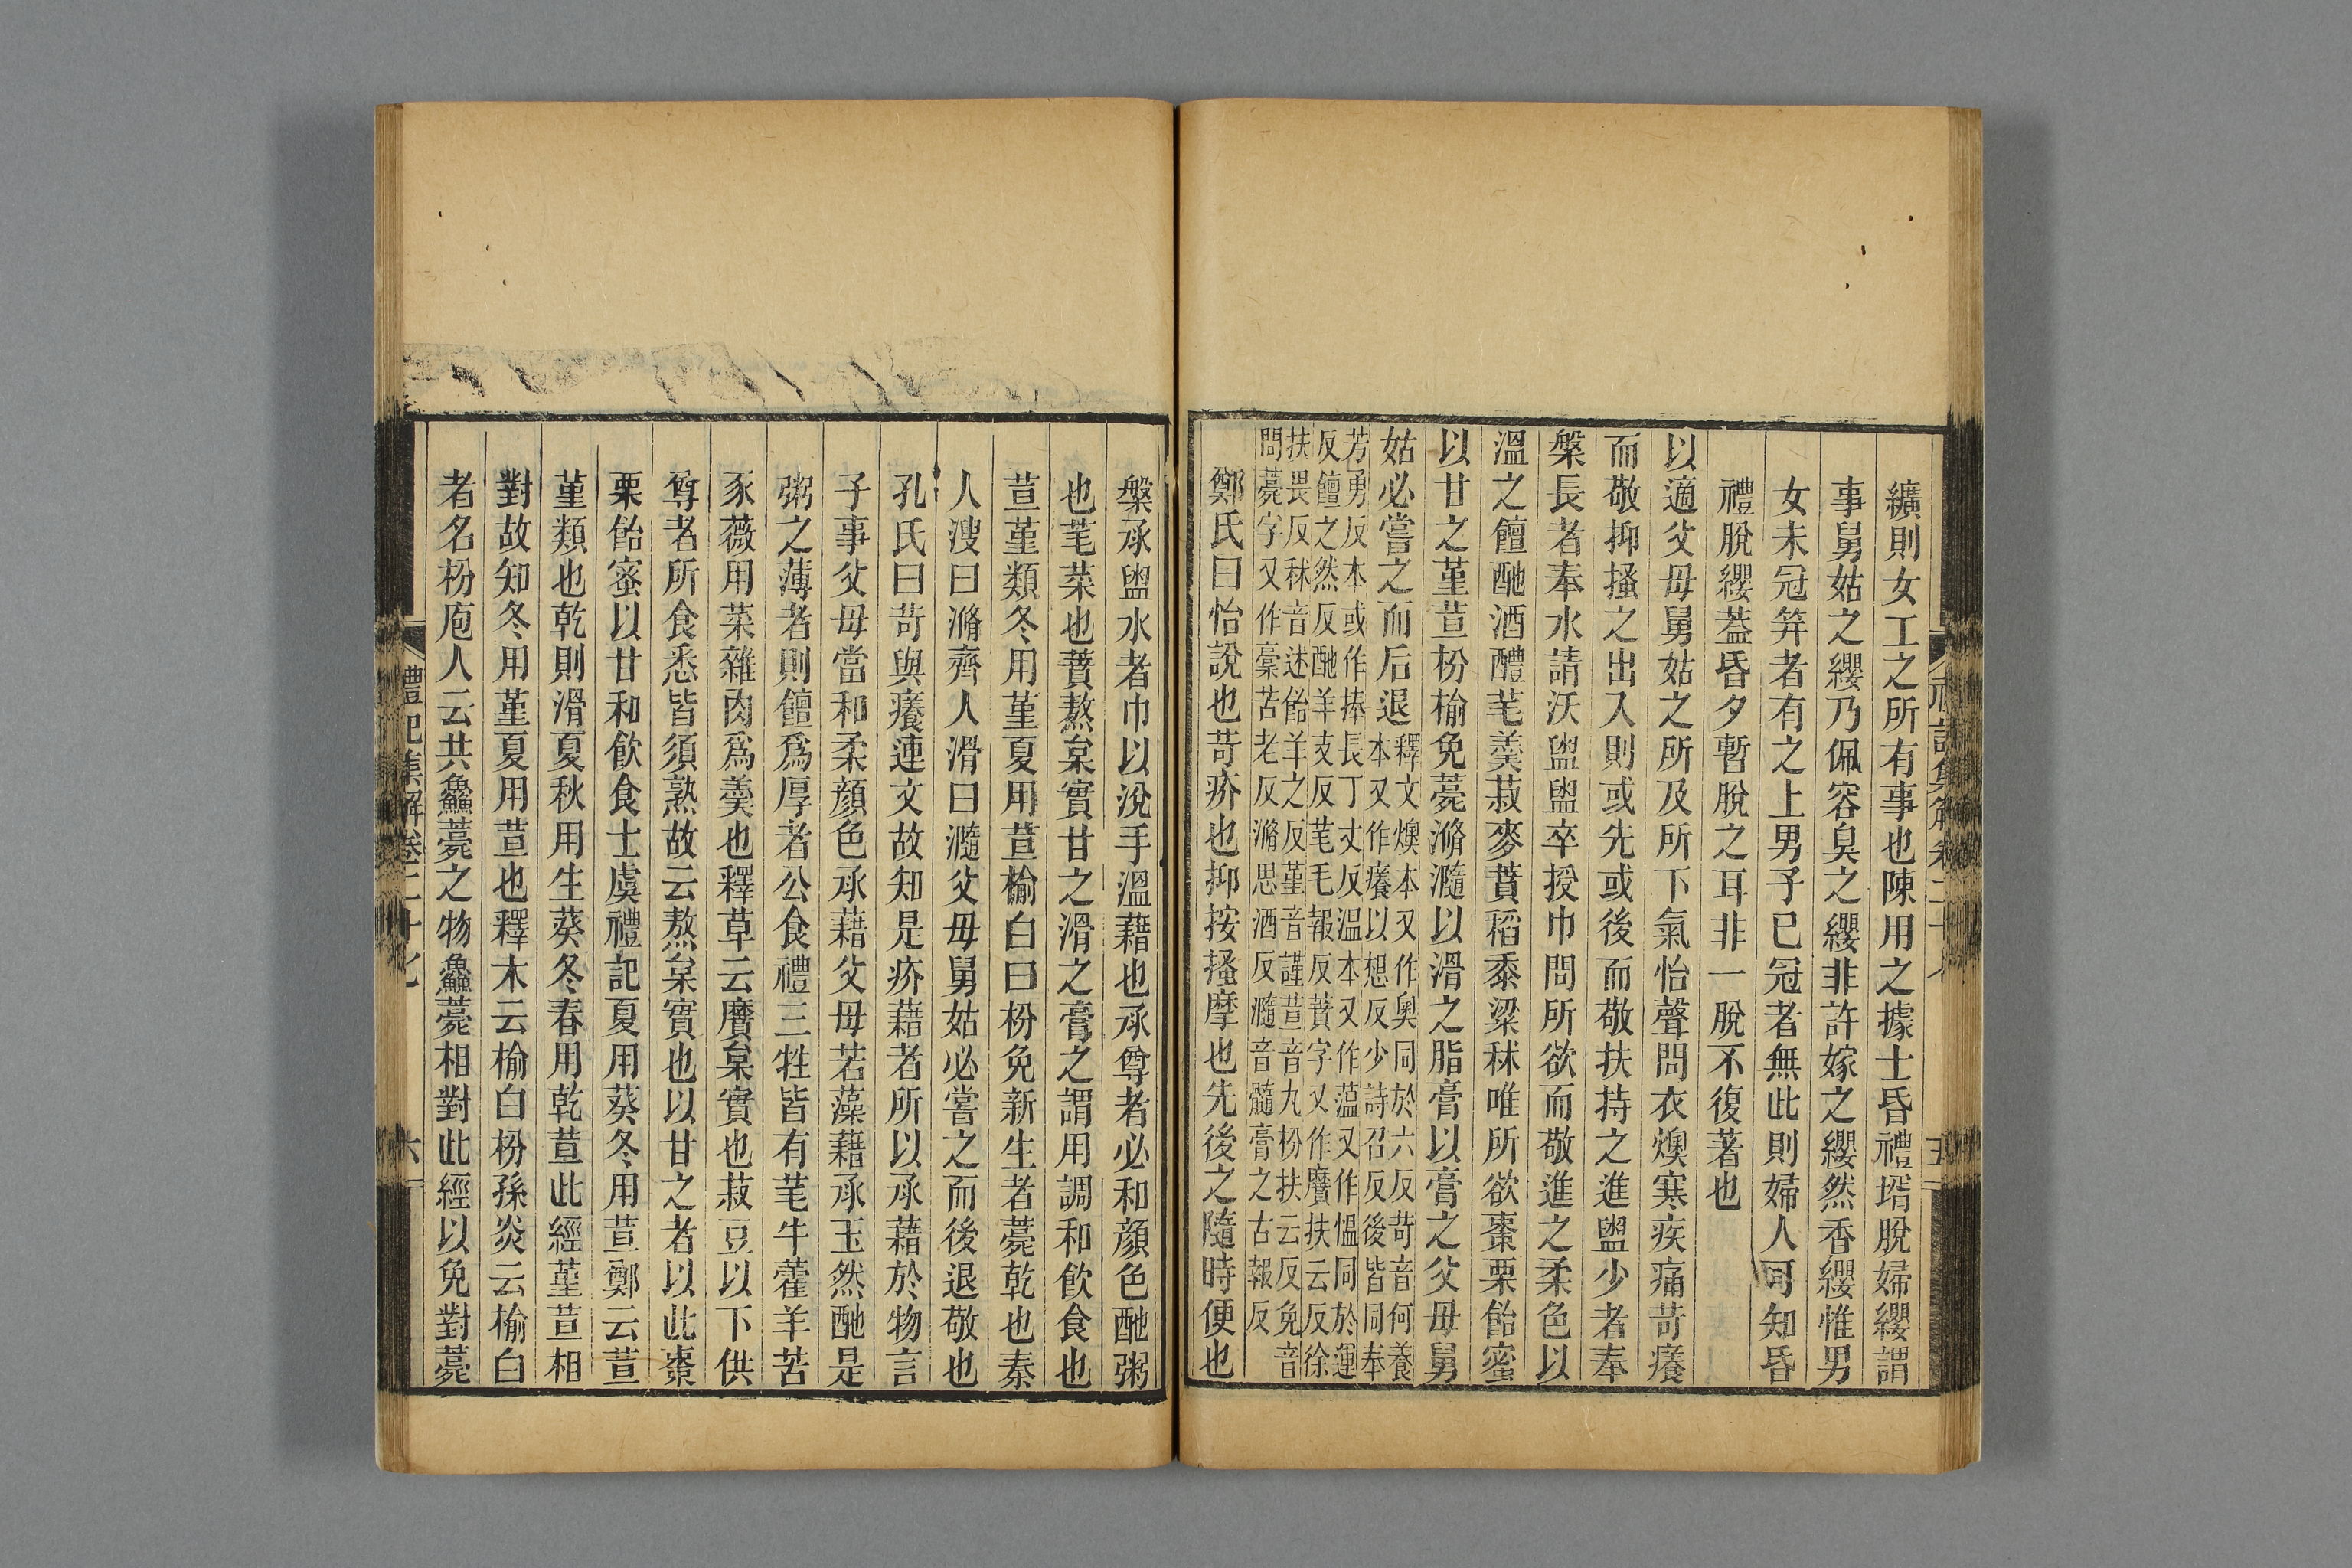 纊則女工之所有事也陳用之據士昏禮壻脫婦纓謂
事舅姑之纓乃佩容臭之纓非許嫁之纓然香纓惟男
女未冠筓者有之上男子已冠者無此則婦人可知昏
禮脫纓葢昏夕暫脫之耳非一脫不復著也
以適父母舅姑之所及所下氣怡聲問衣燠寒疾痛苛癢
而敬抑搔之出入則或先或後而敬扶持之進盥少者奉
槃長者奉水請沃盥盥卒授巾問所欲而敬進之柔色以
溫之饘酏酒醴芼羹菽麥蕡稻黍粱秫唯所欲棗栗飴蜜
以甘之堇荁枌榆免薧滫瀡以滑之脂膏以膏之父母舅
姑必嘗之而后退釋文燠本又作奧同於六反苛音何養
本又作癢以想反少詩召反後皆同奉
芳勇反本或作捧長丁丈反溫本又作薀又作愠同於運
反饘之然反酏羊支反芼毛報反蕡字又作黂扶云反徐
扶畏反秫音述飴羊之反堇音謹荁音九枌扶云反免音
問薧字又作槀苦老反滫思酒反瀡音髓膏之古報反
鄭氏曰怡說也苛疥也抑按搔摩也先後之隨時便也
槃承盥水者巾以涚手溫藉也承尊者必和顏色酏粥
也芼菜也蕡熬枲實甘之滑之膏之謂用調和飮食也
荁堇類冬用堇夏用荁榆白曰枌免新生者薧乾也秦
人溲曰滫齊人滑曰瀡父母舅姑必嘗之而後退敬也
孔氏曰苛與癢連文故知是疥藉者所以承藉於物言
子事父母當和柔顏色承藉父母若藻藉承玉然酏是
粥之薄者則饘爲厚者公食禮三牲皆有芼牛藿羊苦
豕薇用菜雜肉爲羹也釋草云黂枲實也菽豆以下供
尊者所食悉皆須熟故云熬枲實也以甘之者以此棗
栗飴蜜以甘和飮食士虞禮記夏用葵冬用荁鄭云荁
堇類也乾則滑夏秋用生葵冬春用乾荁此經堇荁相
對故知冬用堇夏用荁也釋木云榆白枌孫炎云榆白
者名枌庖人云共鱻薧之物鱻薧相對此經以免對薧
禮記集解卷二十七
六